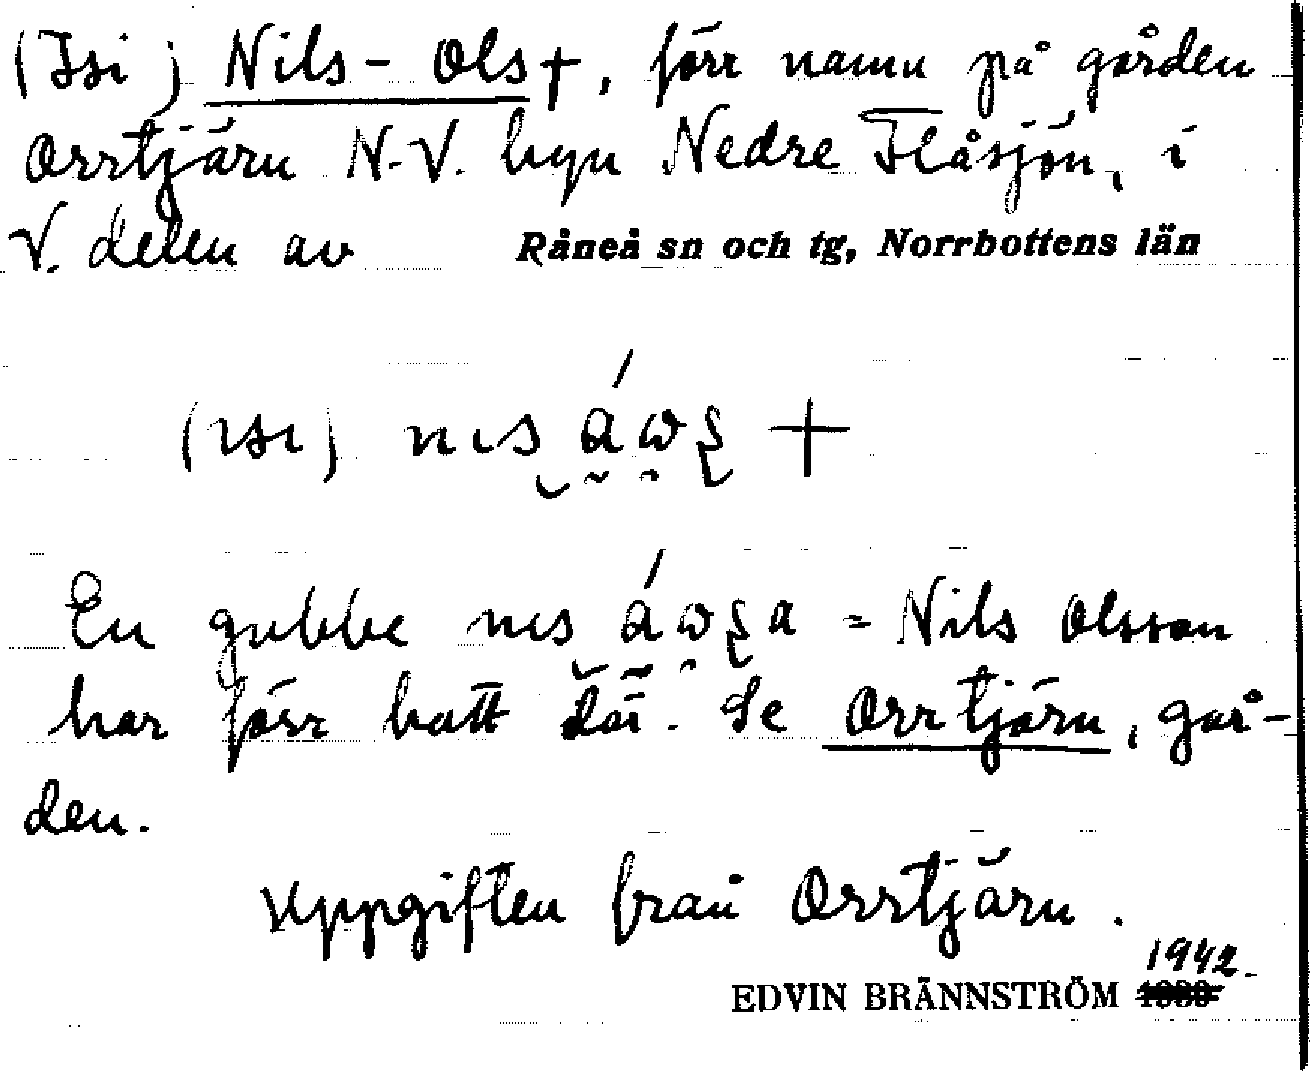 (Isi) Nils-Ols†, förr namn på gården
Orrtjärn N.V. byn Nedre Flåsjön, i
V. delen av Råneå sn och tg, Norrbottens län
(ısı) nıs
+
En gubbe nıs = Nils Olsson
har förr hatt där. Se Orrtjärn, går-
den.
Uppgiften från Orrtjärn.
1942.
EDVIN BRÄNNSTRÖM